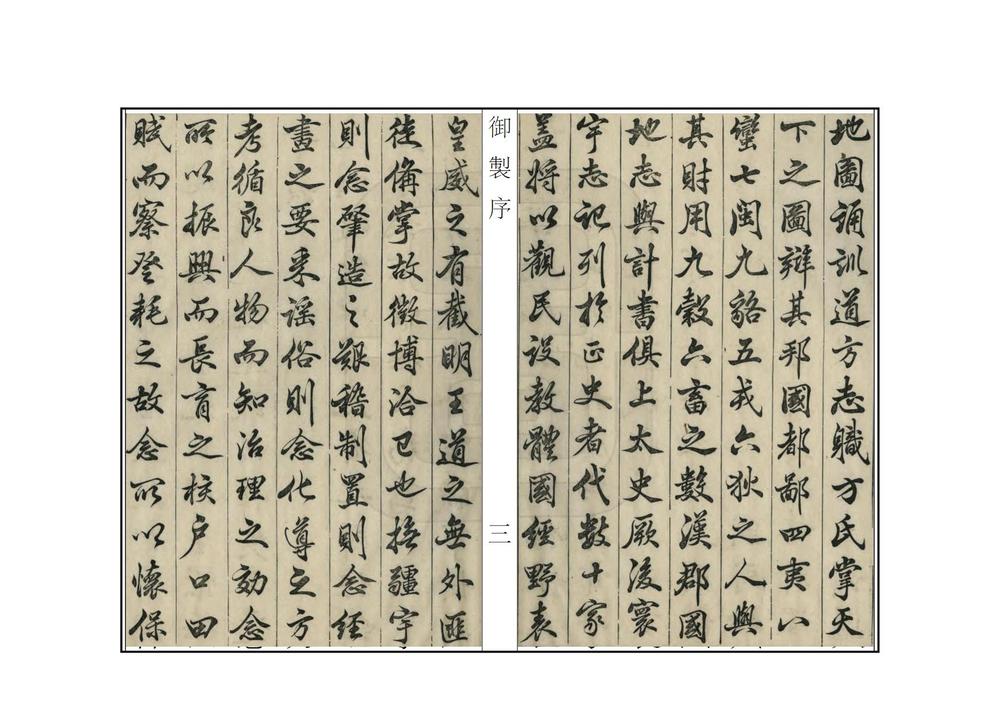 地圖誦訓道方志職方氏掌天
下之圖辯其邦國都鄙四夷八
蠻七閩九貉五戎六狄之人與
其財用九穀六畜之數漢郡國
地志與計書俱上太史厥後寰
宇志記列於正史者代數十家
蓋將以觀民設教體國經野表
御製序
三
皇威之有截明王道之無外匪
徒備掌故徵博洽已也撫疆宇
則念肇造之艱稽制置則念經
畫之要采謠俗則念化導之方
考循良人物而知治理之効念
所以振興而長育之核戶口田
賦而察登耗之故念所以懷保